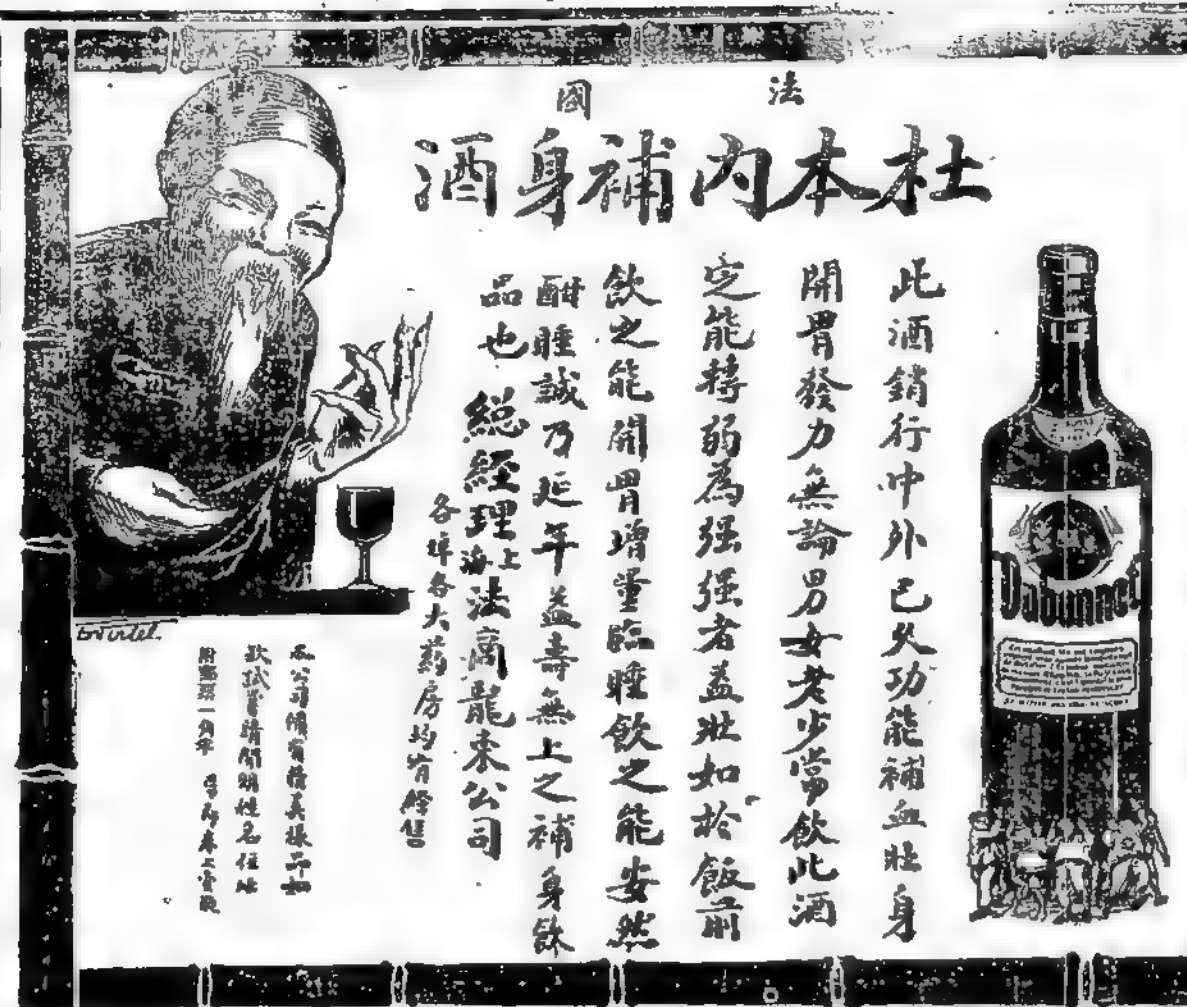 法國
杜本內補身酒
此酒銷行中外已久功能補血壯身
開胃發力無論男女老少當飲此酒
定能轉弱為强强者益壯如於飯前
飲之能開胃增量臨睡飲之能安然
酣睡誠乃延年益壽無上之補身飲
品也 總經理上海法商龍東公司
各埠各大藥房均有經售
本公司備有精美樣品如
欲試嘗請開明姓名住址
附郵票一角半
Dubonnet